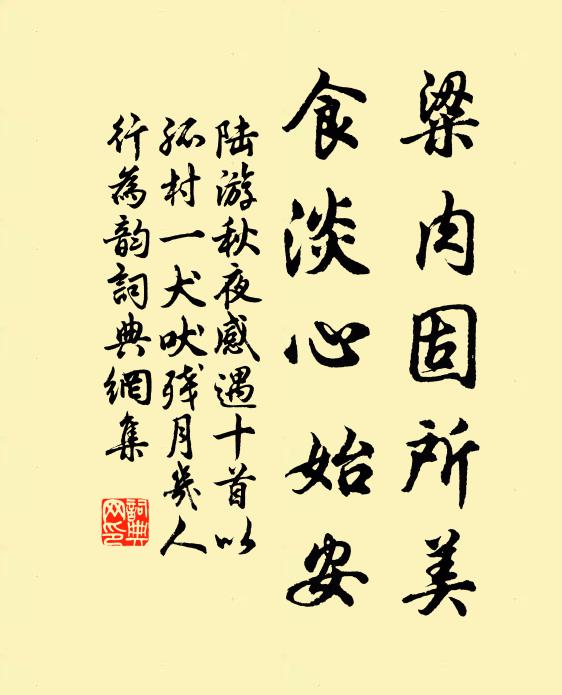 粱肉固所美
食淡心始安
陆游秋夜感遇十首以
孤村一犬吠残月几人
行為韵詞典網集
詞典
网印